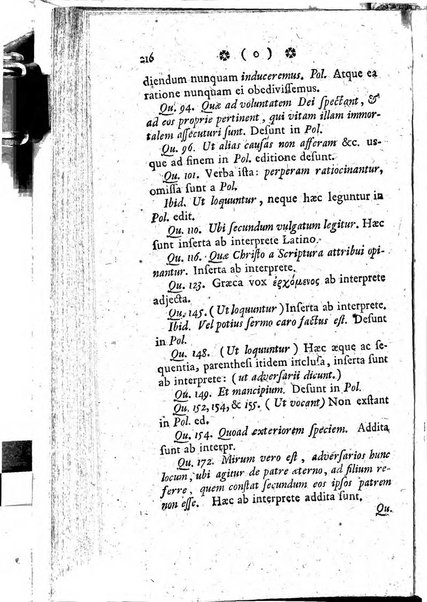 216 ( o )
diendum nunquam induceremus. Pol. Atque ea
ratione nunquam ei obedivissemus.
Qu. 94. Quæ ad voluntatem Dei spectant, &
ad eos proprie pertinent, qui vitam illam immor-
talem assecuturi sunt. Desunt in Pol.
Qu. 96. Ut alias causas non afferam &c. us-
que ad finem in Pol. editione desunt.
Qu. 101. Verba ista: perperam ratiocinantur,
omissa sunt a Pol.
Ibid. Ut loquuntur, neque hæc leguntur in
Pol. edit.
Qu. 110. Ubi secundum vulgatum legitur. Hæc
sunt inserta ab interprete Latino.
Qu. 116. Quæ Christo a Scriptura attribui opi-
nantur. Inserta ab interprete.
Qu. 123. Græca vox ἐρχόμενος ab interprete
adjecta.
Qu. 145. (Ut loquuntur) Inserta ab interprete.
Ibid. Vel potius sermo caro factus est. Desunt
in Pol.
Qu. 148. (Ut loquuntur) Hæc æque ac se-
quentia, parenthesi itidem inclusa, inserta sunt
ab interprete: (ut adversarii dicunt.)
Qu. 149. Et mancipium. Desunt in Pol.
Qu. 152, 154, & 155. (Ut vocant) Non exstant
in Pol. ed.
Qu. 154. Quoad exteriorem speciem. Addita
sunt ab interpr.
Qu. 172. Mirum vero est, adversarios hunc
locum, ubi agitur de patre æterno, ad filium re-
ferre, quem constat secundum eos ipsos patrem
non esse. Hæc ab interprete addita sunt.
Qu.